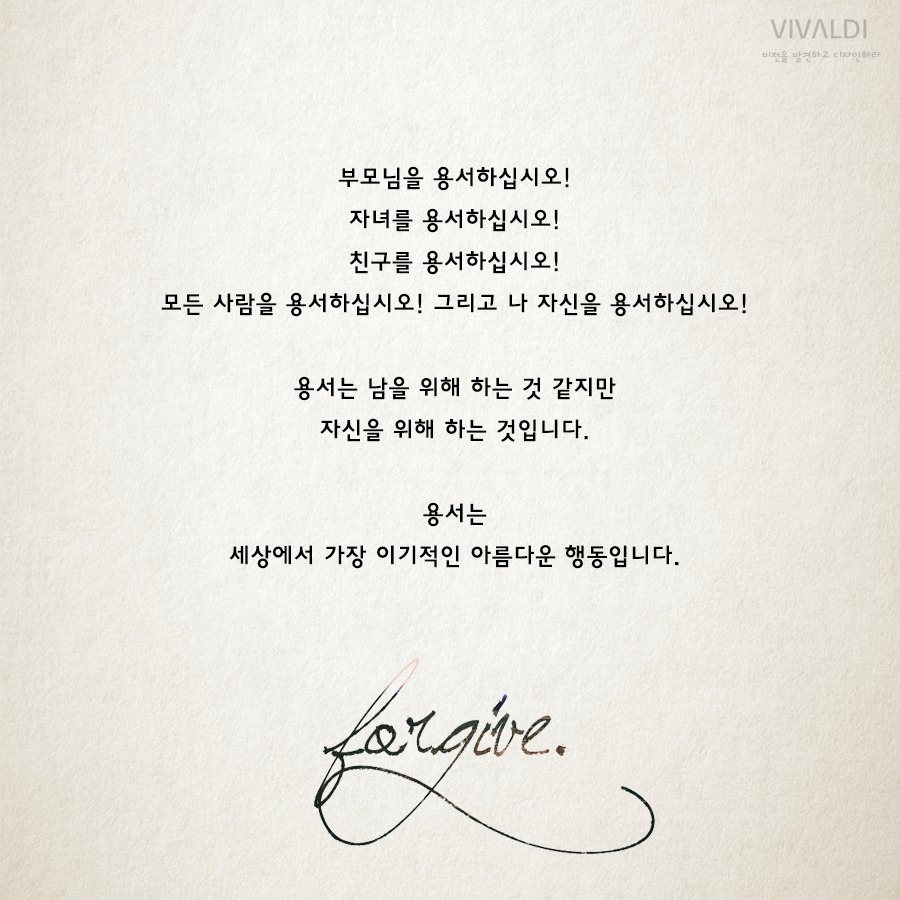 VIVALDI
비전을 발견하고 디자인하라
부모님을 용서하십시오!
자녀를 용서하십시오!
친구를 용서하십시오!
모든 사람을 용서하십시오! 그리고 나 자신을 용서하십시오!
용서는 남을 위해 하는 것 같지만
자신을 위해 하는 것입니다.
용서는
세상에서 가장 이기적인 아름다운 행동입니다.
forgive.